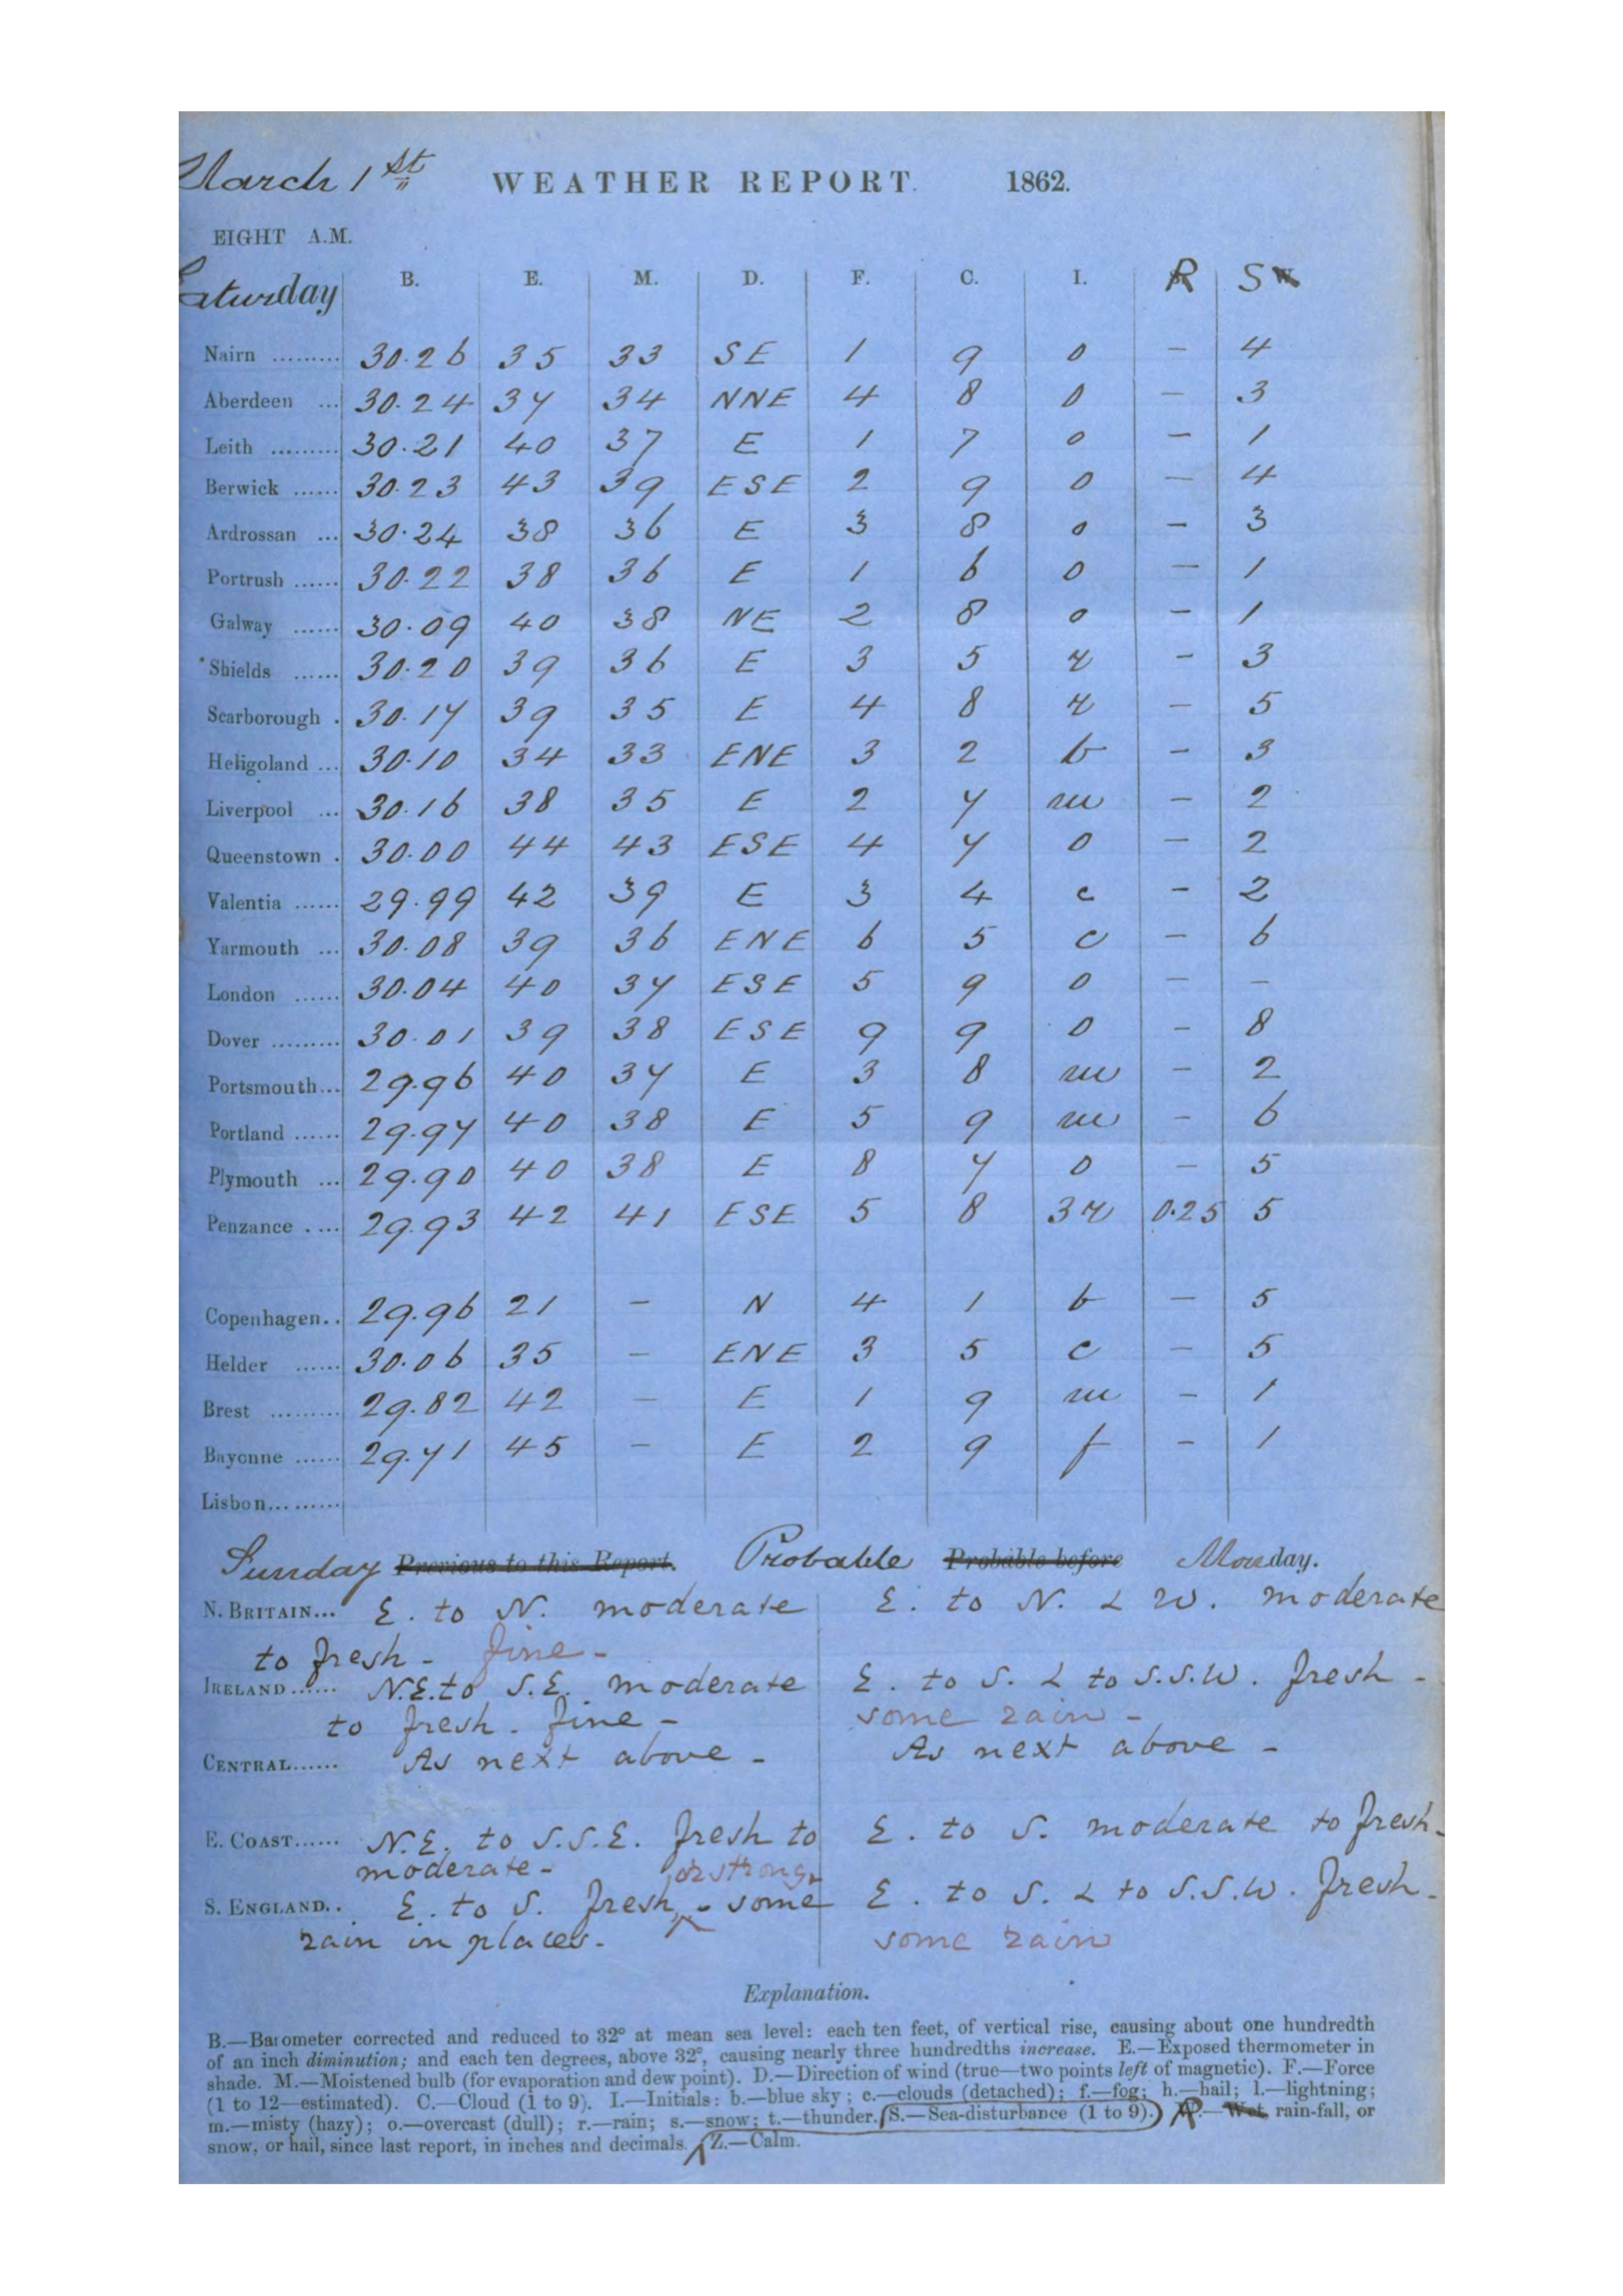 March 1st WEATHER REPORT. 1862.
EIGHT A.M.
Saturday B. E. M. D. F. C. I. R S
Nairn ......... 30.26 35 33 SE 1 9 o – 4
Aberdeen ... 30.24 37 34 NNE 4 8 o – 3
Leith ......... 30.21 40 37 E 1 7 o – 1
Berwick ...... 30.23 43 39 ESE 2 9 o – 4
Ardrossan ... 30.24 38 36 E 3 8 o – 3
Portrush ...... 30.22 38 36 E 1 6 o – 1
Galway ...... 30.09 40 38 NE 2 8 o – 1
Shields ...... 30.20 39 36 E 3 5 r – 3
Scarborough . 30.17 39 35 E 4 8 r – 5
Heligoland ... 30.10 34 33 ENE 3 2 b – 3
Liverpool ... 30.16 38 35 E 2 7 m – 2
Queenstown . 30.00 44 43 ESE 4 7 o – 2
Valentia ...... 29.99 42 39 E 3 4 c – 2
Yarmouth ... 30.08 39 36 ENE 6 5 c – 6
London ...... 30.04 40 37 ESE 5 9 o – –
Dover ......... 30.01 39 38 ESE 9 9 o – 8
Portsmouth... 29.96 40 37 E 3 8 m – 2
Portland ...... 29.97 40 38 E 5 9 m – 6
Plymouth ... 29.90 40 38 E 8 7 o – 5
Penzance . ... 29.93 42 41 ESE 5 8 3r 0.25 5
Copenhagen.. 29.96 21 – N 4 1 b – 5
Helder ...... 30.06 35 – ENE 3 5 c – 5
Brest ......... 29.82 42 – E 1 9 m – 1
Bayonne ...... 29.71 45 – E 2 9 f – 1
Lisbon.........
Sunday Previous to this Report. Probable Probable before Monday.
N. BRITAIN... E. to N. moderate E. to N. & W. moderate
to fresh – fine –
IRELAND ...... N.E. to S.E. moderate E. to S. & to S.S.W. fresh –
to fresh. fine – some rain –
CENTRAL...... As next above – As next above –
E. COAST...... N.E. to S.S.E. fresh to E. to S. moderate to fresh –
moderate – or strong
S. ENGLAND.. E. to S. fresh, – some E. to S. & to S.S.W. fresh –
rain in places. – some rain
Explanation.
B.—Barometer corrected and reduced to 32° at mean sea level: each ten feet, of vertical rise, causing about one hundredth
of an inch diminution; and each ten degrees, above 32°, causing nearly three hundredths increase. E.—Exposed thermometer in
shade. M.—Moistened bulb (for evaporation and dew point). D.—Direction of wind (true—two points left of magnetic). F.—Force
(1 to 12—estimated). C.—Cloud (1 to 9). I.—Initials: b.—blue sky; c.—clouds (detached); f.—fog; h.—hail; l.—lightning;
m.—misty (hazy); o.—overcast (dull); r.—rain; s.—snow; t.—thunder. S.—Sea-disturbance (1 to 9). R.— Wet, rain-fall, or
snow, or hail, since last report, in inches and decimals. Z.—Calm.